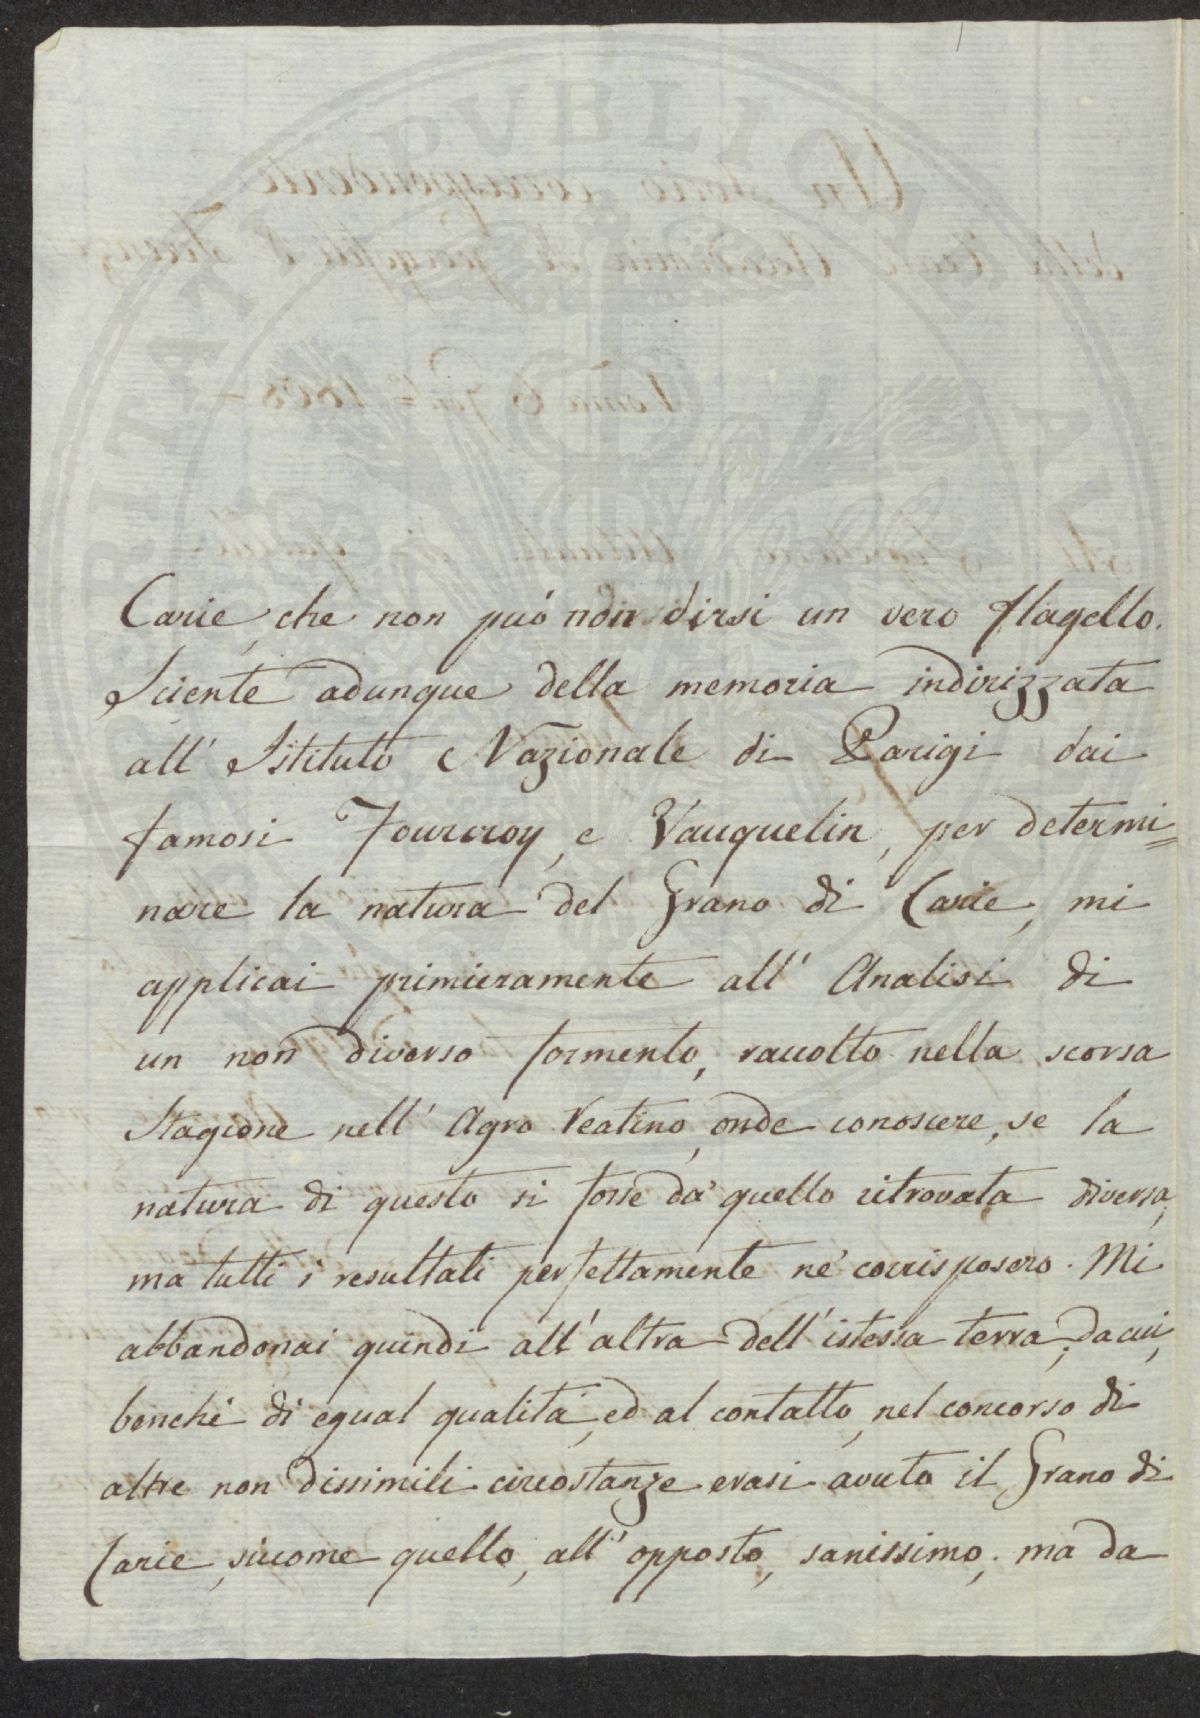 Carie, che non può non dirsi un vero flagello.
Sciente adunque della memoria indirizzata
all' Istituto Nazionale di Parigi dai
famosi Fourcroy, e Vauquelin, per determi=
nare la natura del Grano di Carie, mi
applicai primieramente all' Analisi di
un non diverso formento, raccolto nella scorsa
Stagione nell' Agro Teatino, onde conoscere, se la
natura di questo si fosse da quello ritrovata diversa,
ma tutti i resultati perfettamente ne corrisposero. Mi
abbandonai quindi all' altra dell' istessa terra, da cui,
benchè di egual qualità, ed al contatto, nel concorso di
altre non dissimili circostanze erasi avuto il Grano di
Carie, siccome quello, all' opposto, sanissimo; ma da